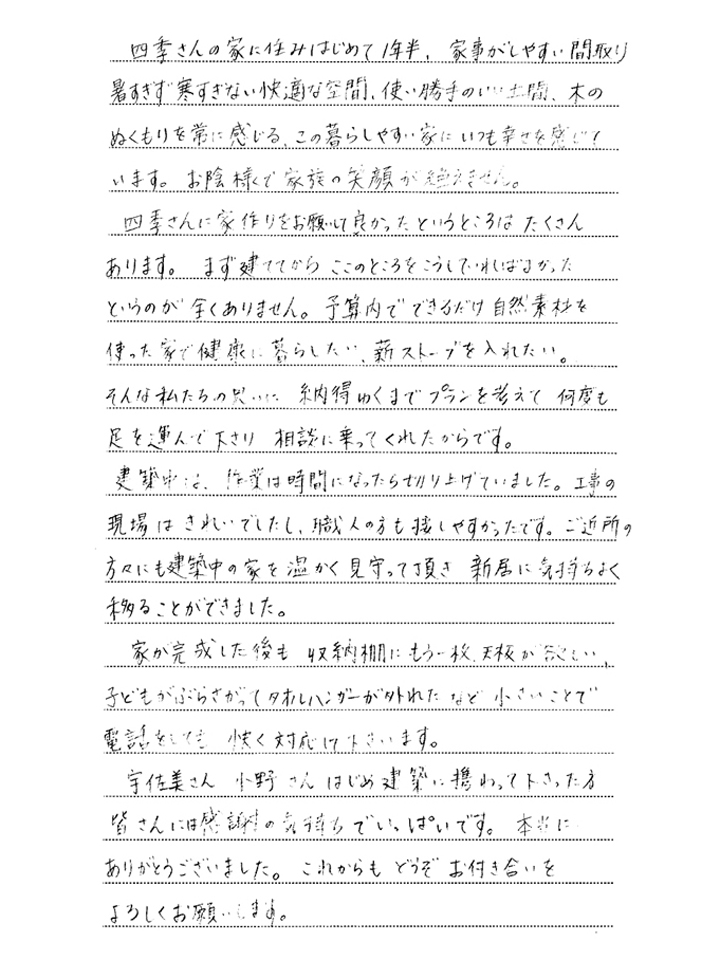 四季さんの家に住みはじめて1年半、家事がしやすい間取り
暑すぎず寒すぎない快適な空間、使い勝手のいい土間、木の
ぬくもりを常に感じる、この暮らしやすい家にいつも幸せを感じて
います。お陰様で家族の笑顔が絶えません。
四季さんに家作りをお願いして良かったというところはたくさん
あります。まず建ててからここのところをこうしていればよかった
というのが全くありません。予算内でできるだけ自然素材を
使った家で健康に暮らしたい、薪ストーブを入れたい。
そんな私たちの思いに納得ゆくまでプランを考えて何度も
足を運んで下さり相談に乗ってくれたからです。
建築中は、作業は時間になったら切り上げていました。工事の
現場はきれいでしたし、職人の方も接しやすかったです。ご近所の
方々にも建築中の家を温かく見守って頂き新居に気持ちよく
移ることができました。
家が完成した後も収納棚にもう一枚天板が欲しい、
子どもがぶらさがってタオルハンガーが外れたなど小さいことで
電話をしても快く対応け下さいます。
宇佐美さん小野さんはじめ建築に携わって下さった方
皆さんには感謝の気持ちでいっぱいです。本当に
ありがとうございました。これからもどうぞお付き合いを
よろしくお願いします。